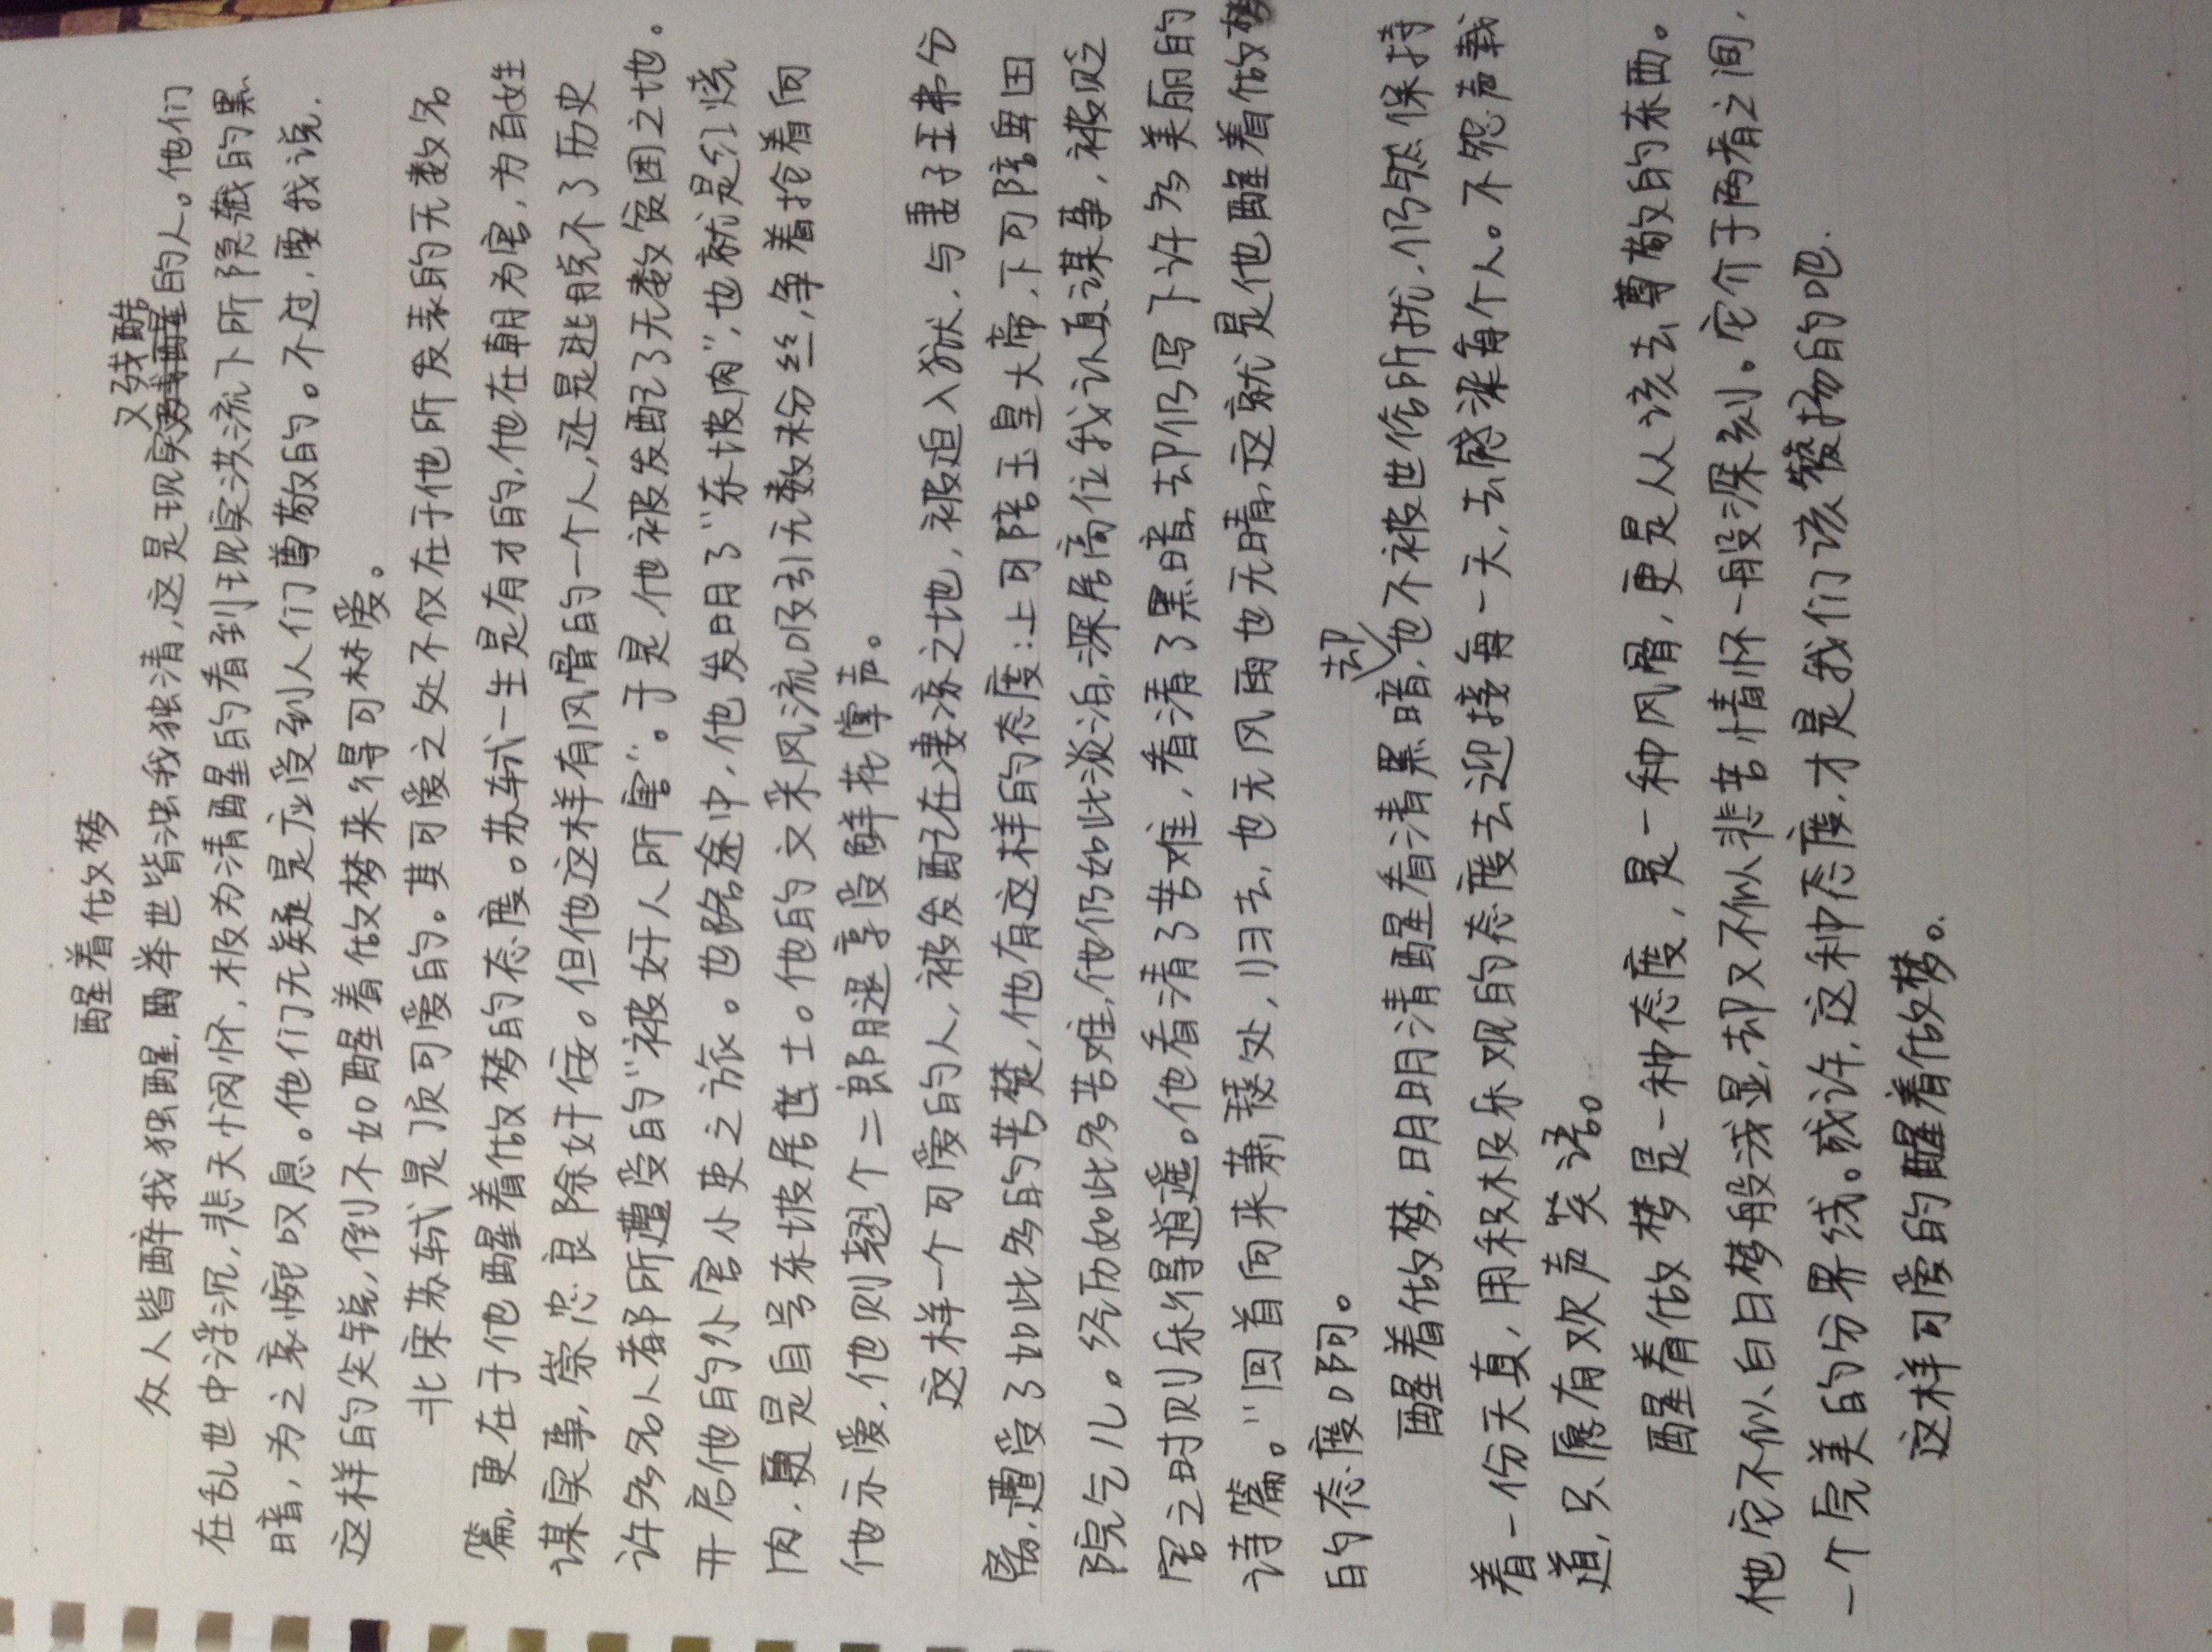 醒着做梦
众人皆醉我独醒,举世皆浊我独清,这是现实又残酷的人。他们
在乱世中浮沉,悲天悯怀,极为清醒的看到现实洪流下所隐藏的黑
暗,为之哀惋叹息。他们无疑是应受到人们尊敬的。不过,要我说,
这样的尖锐,倒不如醒着做梦来得可林爱。
北宋苏轼是顶可爱的。其可爱之处不仅在于他所发表的无数名
篇,更在于他醒着做梦的态度。苏轼一生是有才的,他在朝为官,为百姓
谋实事,崇忠良除奸佞。但他这样有风骨的一个人,还是逃脱不了历史
许多名人都所遭受的“被奸人所害”。于是,他被发配了无数贫困之地。
开启他的外官小吏之旅。也路途中,他发明了“东坡肉”,也就是红烧
肉,更是自号东坡居士。他的文采风流吸引无数粉丝,争着抢着向
他示爱,他则翘个二郎腿享受鲜花掌声。
这样一个可爱的人,被发配在凄凉之地,被迫入狱,与妻子王弗分
离,遭受了如此多的苦楚,他有这样的态度:上可陪玉皇大帝,下可陪卑田
院乞儿。经历如此多苦难,他仍如此淡泊,深居高位我认真谋事,被贬
官之时则乐得逍遥。他看清了苦难,看清了黑暗,却仍写下许多美丽的
诗篇。“回首向来萧瑟处,归去,也无风雨也无晴,这就是他醒着做梦
的态度啊。
醒着做梦,明明清醒看清黑暗,却也不被世俗所扰,仍然保持
着一份天真,用积极乐观的态度去迎接每一天,去感染每个人。不怨声载
道,只愿有欢声笑语。
醒着做梦是一种态度,是一种风骨,更是人该去尊敬的东西。
他它不似白日梦般浅显,却又不似悲苦情怀一般深刻。它介于两者之间,
一个完美的分界线。或许,这种态度,才是我们该发扬的吧.
这样可爱的醒着做梦。